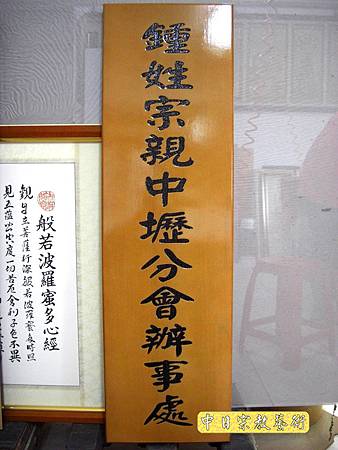 鍾姓宗親中壢分會辦事處
般若波羅蜜多心經
觀自在菩薩行深般若波羅蜜多時照
見五蘊皆空度一切苦厄舍利子色不異
中日宗教藝術